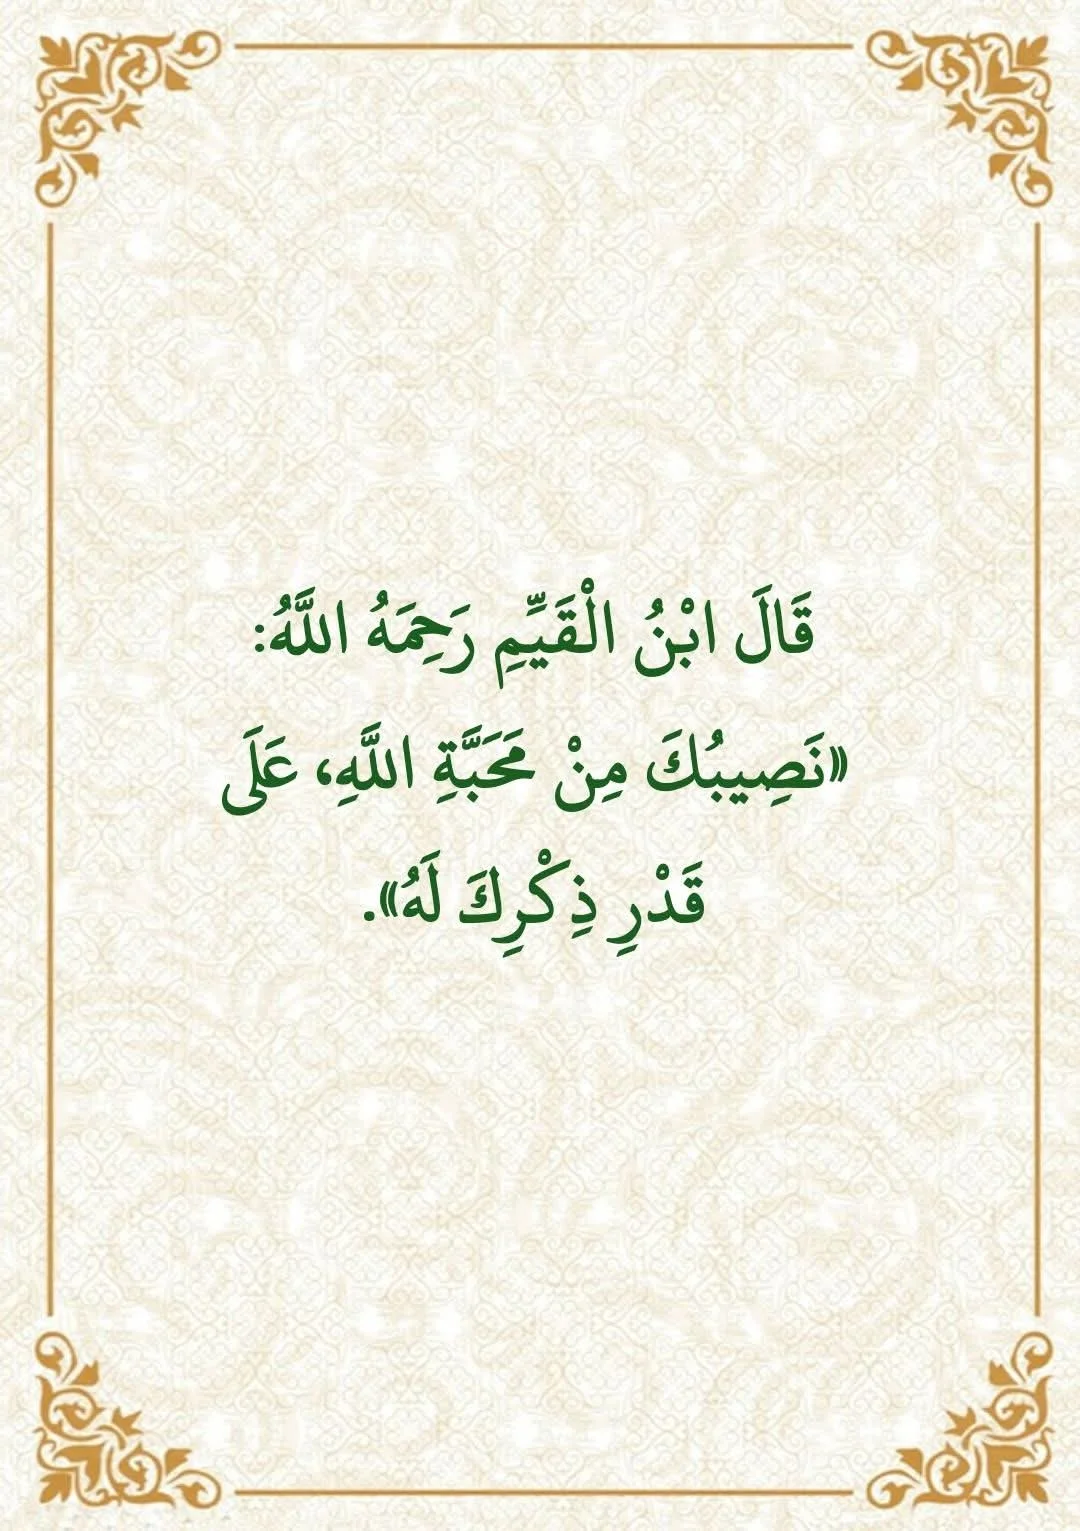 قَالَ ابْنُ الْقَيِّمِ رَحِمَهُ اللَّهُ:
«نَصِيبُكَ مِنْ مَحَبَّةِ اللَّهِ، عَلَى
قَدْرِ ذِكْرِكَ لَهُ».